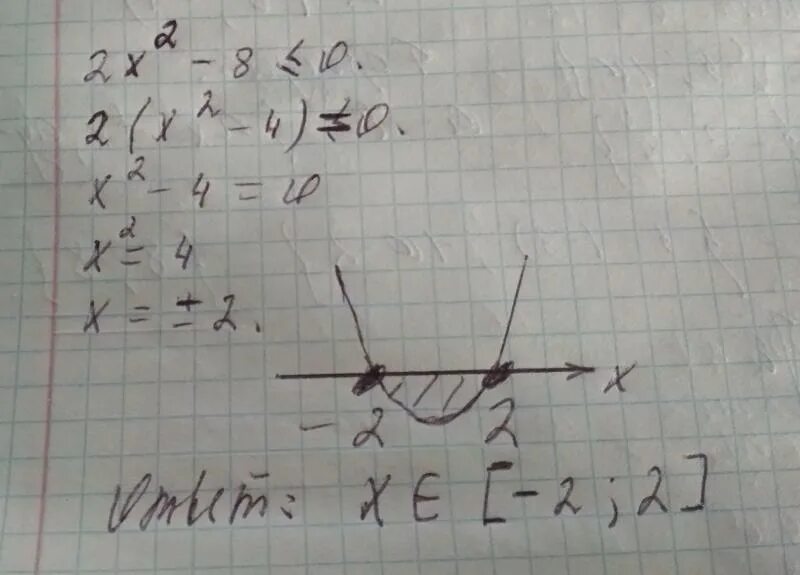 2x² - 8 ≤ 0.
2(x² - 4) ≤ 0.
x² - 4 = 0
x² = 4
x = ± 2.
x
-2 2
Ответ: x ∈ [-2; 2]